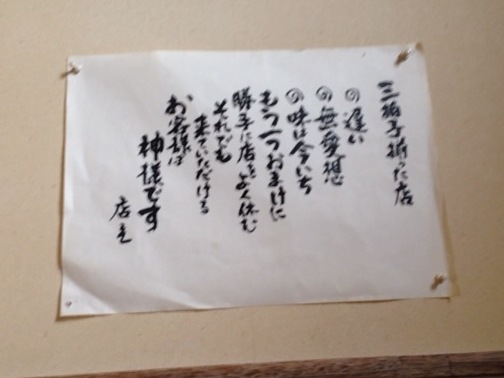 三拍子揃った店
◎遅い
◎無愛想
◎味は今いち
もう一つおまけに
勝手に店をよく休む
それでも
来ていただける
お客様は
神様です
店主